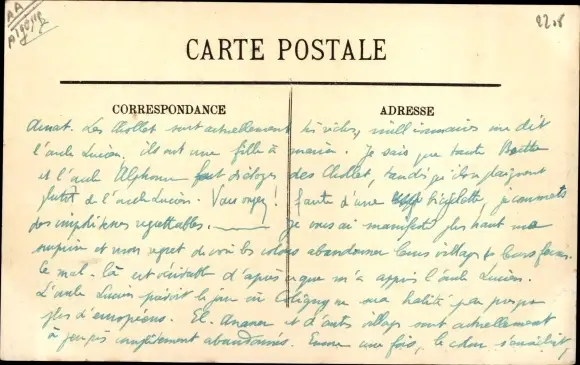 AA
Algérie
2208
CARTE POSTALE
CORRESPONDANCE
ADRESSE
Amat. Les Chollet sont actuellement très riches, millionnaires me dit
l'oncle Lucien. Ils ont une fille à marier. Je sais que tante Berthe
et l'oncle Alphonse font des éloges des Chollet, tandis qu'ils se plaignent
plutôt de l'oncle Lucien. Vous voyez! faute d'une bicyclette, je commets
des imprudences regrettables. Je vous ai manifesté plus haut ma
surprise et mon regret de voir les colons abandonner leurs villages & leurs fermes.
Le mal-là est inévitable d'après ce que m'a appris l'oncle Lucien.
L'oncle Lucien prévoit le jour où Coligny ne sera habité par presque
plus d'européens. El. Anasser et d'autres villages sont actuellement
à peu près complètement abandonnés. Encore une fois, le colon s'enrichit,